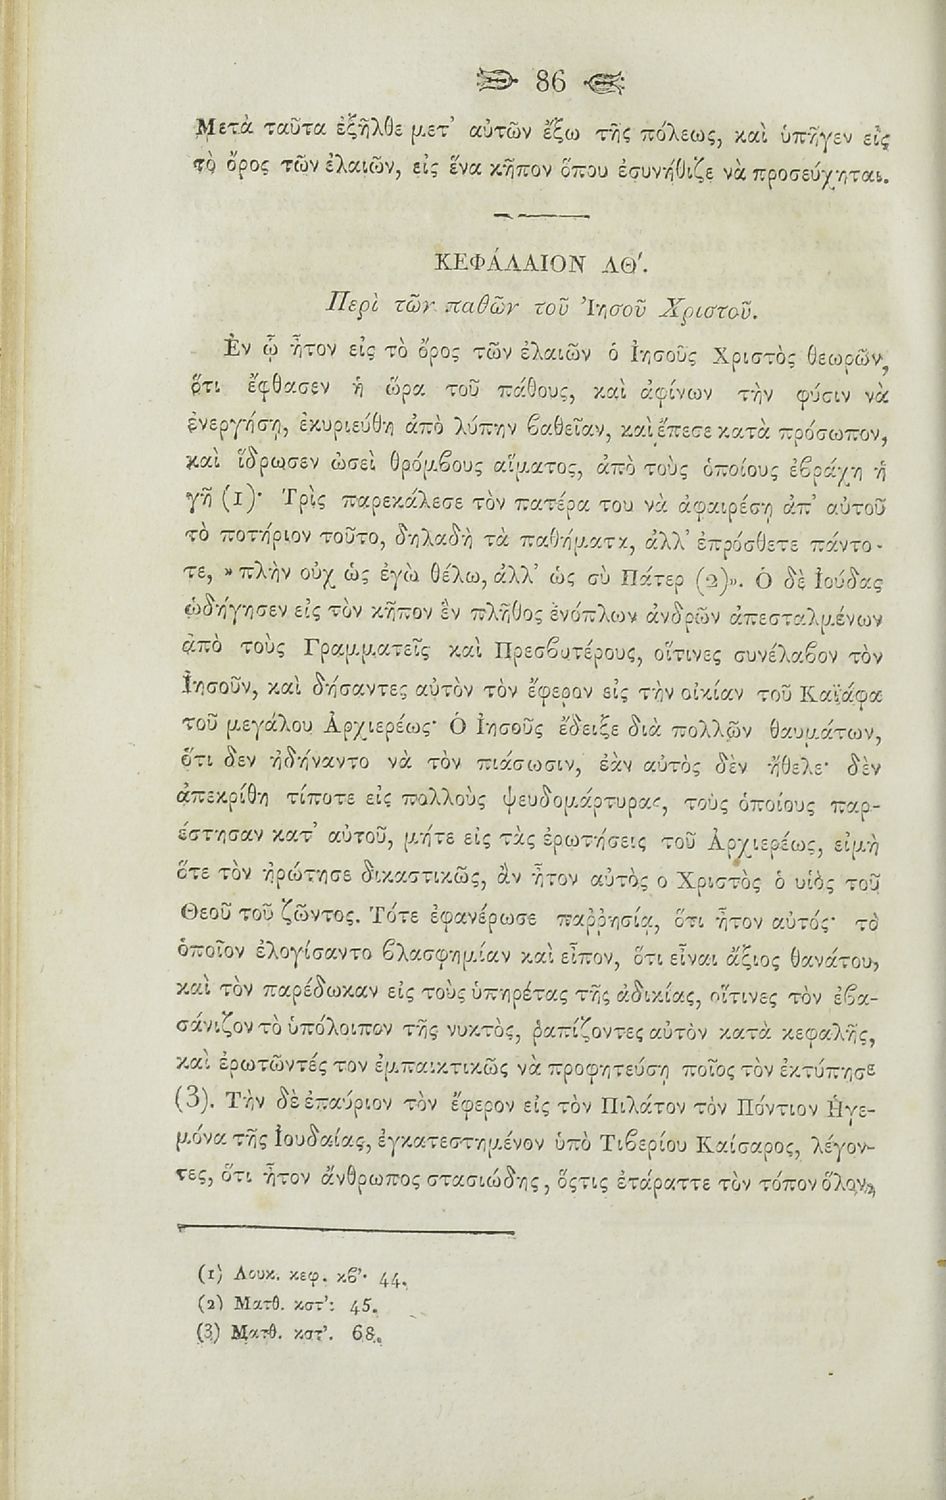 86
Μετὰ ταῦτα ἐξῆλθε μετ' αὐτῶν ἔξω τῆς πόλεως, καὶ ὑπῆγεν εἰς
τὸ ὄρος τῶν ἐλαιῶν, εἰς ἕνα κῆπον ὅπου ἐσυνήθιζε νὰ προσεύχηται.
ΚΕΦΑΛΑΙΟΝ ΛΘ'.
Περὶ τῶν παθῶν τοῦ Ἰησοῦ Χριστοῦ.
Ἐν ᾧ ἦτον εἰς τὸ ὄρος τῶν ἐλαιῶν ὁ Ἰησοῦς Χριστὸς θεωρῶν,
ὅτι ἔφθασεν ἡ ὥρα τοῦ πάθους, καὶ ἀφίνων τὴν φύσιν νὰ
ἐνεργήσῃ, ἐκυριεύθη ἀπὸ λύπην βαθεῖαν, καὶ ἔπεσε κατὰ πρόσωπον,
καὶ ἵδρωσεν ὡσεὶ θρόμβους αἵματος, ἀπὸ τοὺς ὁποίους ἐβράχη ἡ
γῆ (1)· Τρὶς παρεκάλεσε τὸν πατέρα του νὰ ἀφαιρέσῃ ἀπ' αὐτοῦ
τὸ ποτήριον τοῦτο, δηλαδὴ τὰ παθήματα, ἀλλ' ἐπρόσθετε πάντο-
τε, »πλὴν οὐχ ὡς ἐγὼ θέλω, ἀλλ' ὡς σὺ Πάτερ (2)». Ὁ δὲ Ἰούδας
ὡδήγησεν εἰς τὸν κῆπον ἓν πλῆθος ἐνόπλων ἀνδρῶν ἀπεσταλμένων
ἀπὸ τοὺς Γραμματεῖς καὶ Πρεσβυτέρους, οἵτινες συνέλαβον τὸν
Ἰησοῦν, καὶ δήσαντες αὐτὸν τὸν ἔφερον εἰς τὴν οἰκίαν τοῦ Καϊάφα
τοῦ μεγάλου Ἀρχιερέως· Ὁ Ἰησοῦς ἔδειξε διὰ πολλῶν θαυμάτων,
ὅτι δεν ἠδήναντο νὰ τὸν πιάσωσιν, ἐὰν αὐτὸς δὲν ἤθελε· δὲν
ἀπεκρίθη τίποτε εἰς πολλοὺς ψευδομάρτυρας, τοὺς ὁποίους παρ-
έστησαν κατ' αὐτοῦ, μήτε εἰς τὰς ἐρωτήσεις τοῦ Ἀρχιερέως, εἰμὴ
ὅτε τὸν ἠρώτησε δικαστικῶς, ἂν ἦτον αὐτὸς ο Χριστὸς ὁ υἱὸς τοῦ
Θεοῦ τοῦ ζῶντος. Τότε ἐφανέρωσε παῤῥησίᾳ, ὅτι ἦτον αὐτός· τὸ
ὁποῖον ἐλογίσαντο βλασφημίαν καὶ εἶπον, ὅτι εἶναι ἄξιος θανάτου,
καὶ τὸν παρέδωκαν εἰς τοὺς ὑπηρέτας τῆς ἀδικίας, οἵτινες τὸν ἐβα-
σάνιζον τὸ ὑπόλοιπον τῆς νυκτὸς, ῥαπίζοντες αὐτὸν κατὰ κεφαλῆς,
καὶ ἐρωτῶντές τον ἐμπαικτικῶς νὰ προφητεύσῃ ποῖος τὸν ἐκτύπησε
(3). Τὴν δὲ ἐπαύριον τὸν ἔφερον εἰς τὸν Πιλάτον τὸν Πόντιον Ἡγε-
μόνα τῆς Ἰουδαίας, ἐγκατεστημένον ὑπὸ Τιβερίου Καίσαρος, λέγον-
τες, ὅτι ἦτον ἄνθρωπος στασιώδης, ὅςτις ἐτάραττε τὸν τόπον ὅλον,
(1) Λουκ. κεφ. κβ'· 44.
(2) Ματθ. κστ': 45.
(3) Ματθ. κστ'. 68.